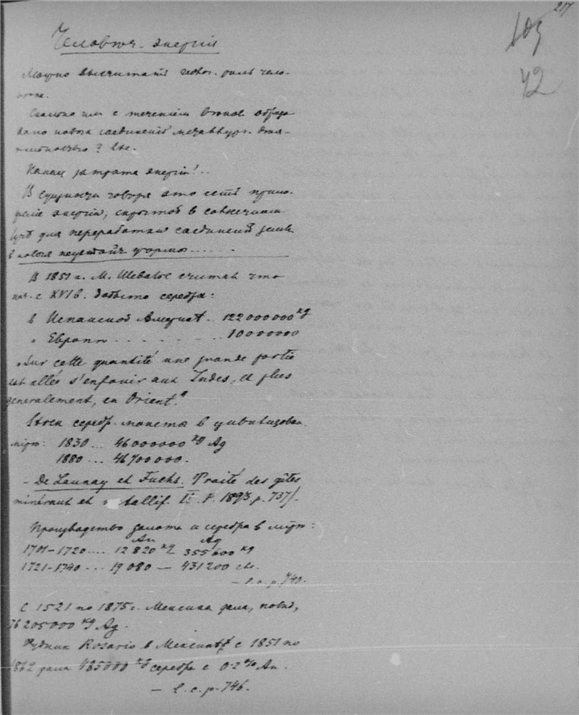 217
103
42
Человеч. энергия
Можно высчитать геохим. роль чело-
века.
Сколько им с течением веков образо-
вано новых соединений металлург. дея-
тельностью? etc.
Какая затрата энергии!..
В сущности говоря это есть прило-
жение энергии, скрытой в
для переработки соединений земли
в новые формы.....
В 1851 г. М. Шевалье считал что
нач. с XVI в. добыто серебра:
в Испанской Америке.. 122 000 000 kg
„ Европы . . . . . . . 10 000 000
„Sur cette quantité une grande partie
est allée s'enfouir aux Indes, et plus
généralement, en Orient."
Stock серебр. монеты в цивилизован.
мире: 1830 ... 46 000 000 kg Ag
1880 ... 46 700 000.
– De Launay et Fuchs. Traité des gîtes
minéraux et métallif. II. P. 1893, p. 737/.
Производство золота и серебра в мире:
Au Ag
1701–1720.... 12 820 kg 355 600 kg
1721–1740... 19 080 – 431 200
– l. c. p. 740.
С 1521 по 1875 г. Мексика дала,
76 205 000 kg Ag.
Рудник Rosario в Мексике с 1851 по
дала 485000 kg серебра с 0.2% Au.
– l. c. p. 746.